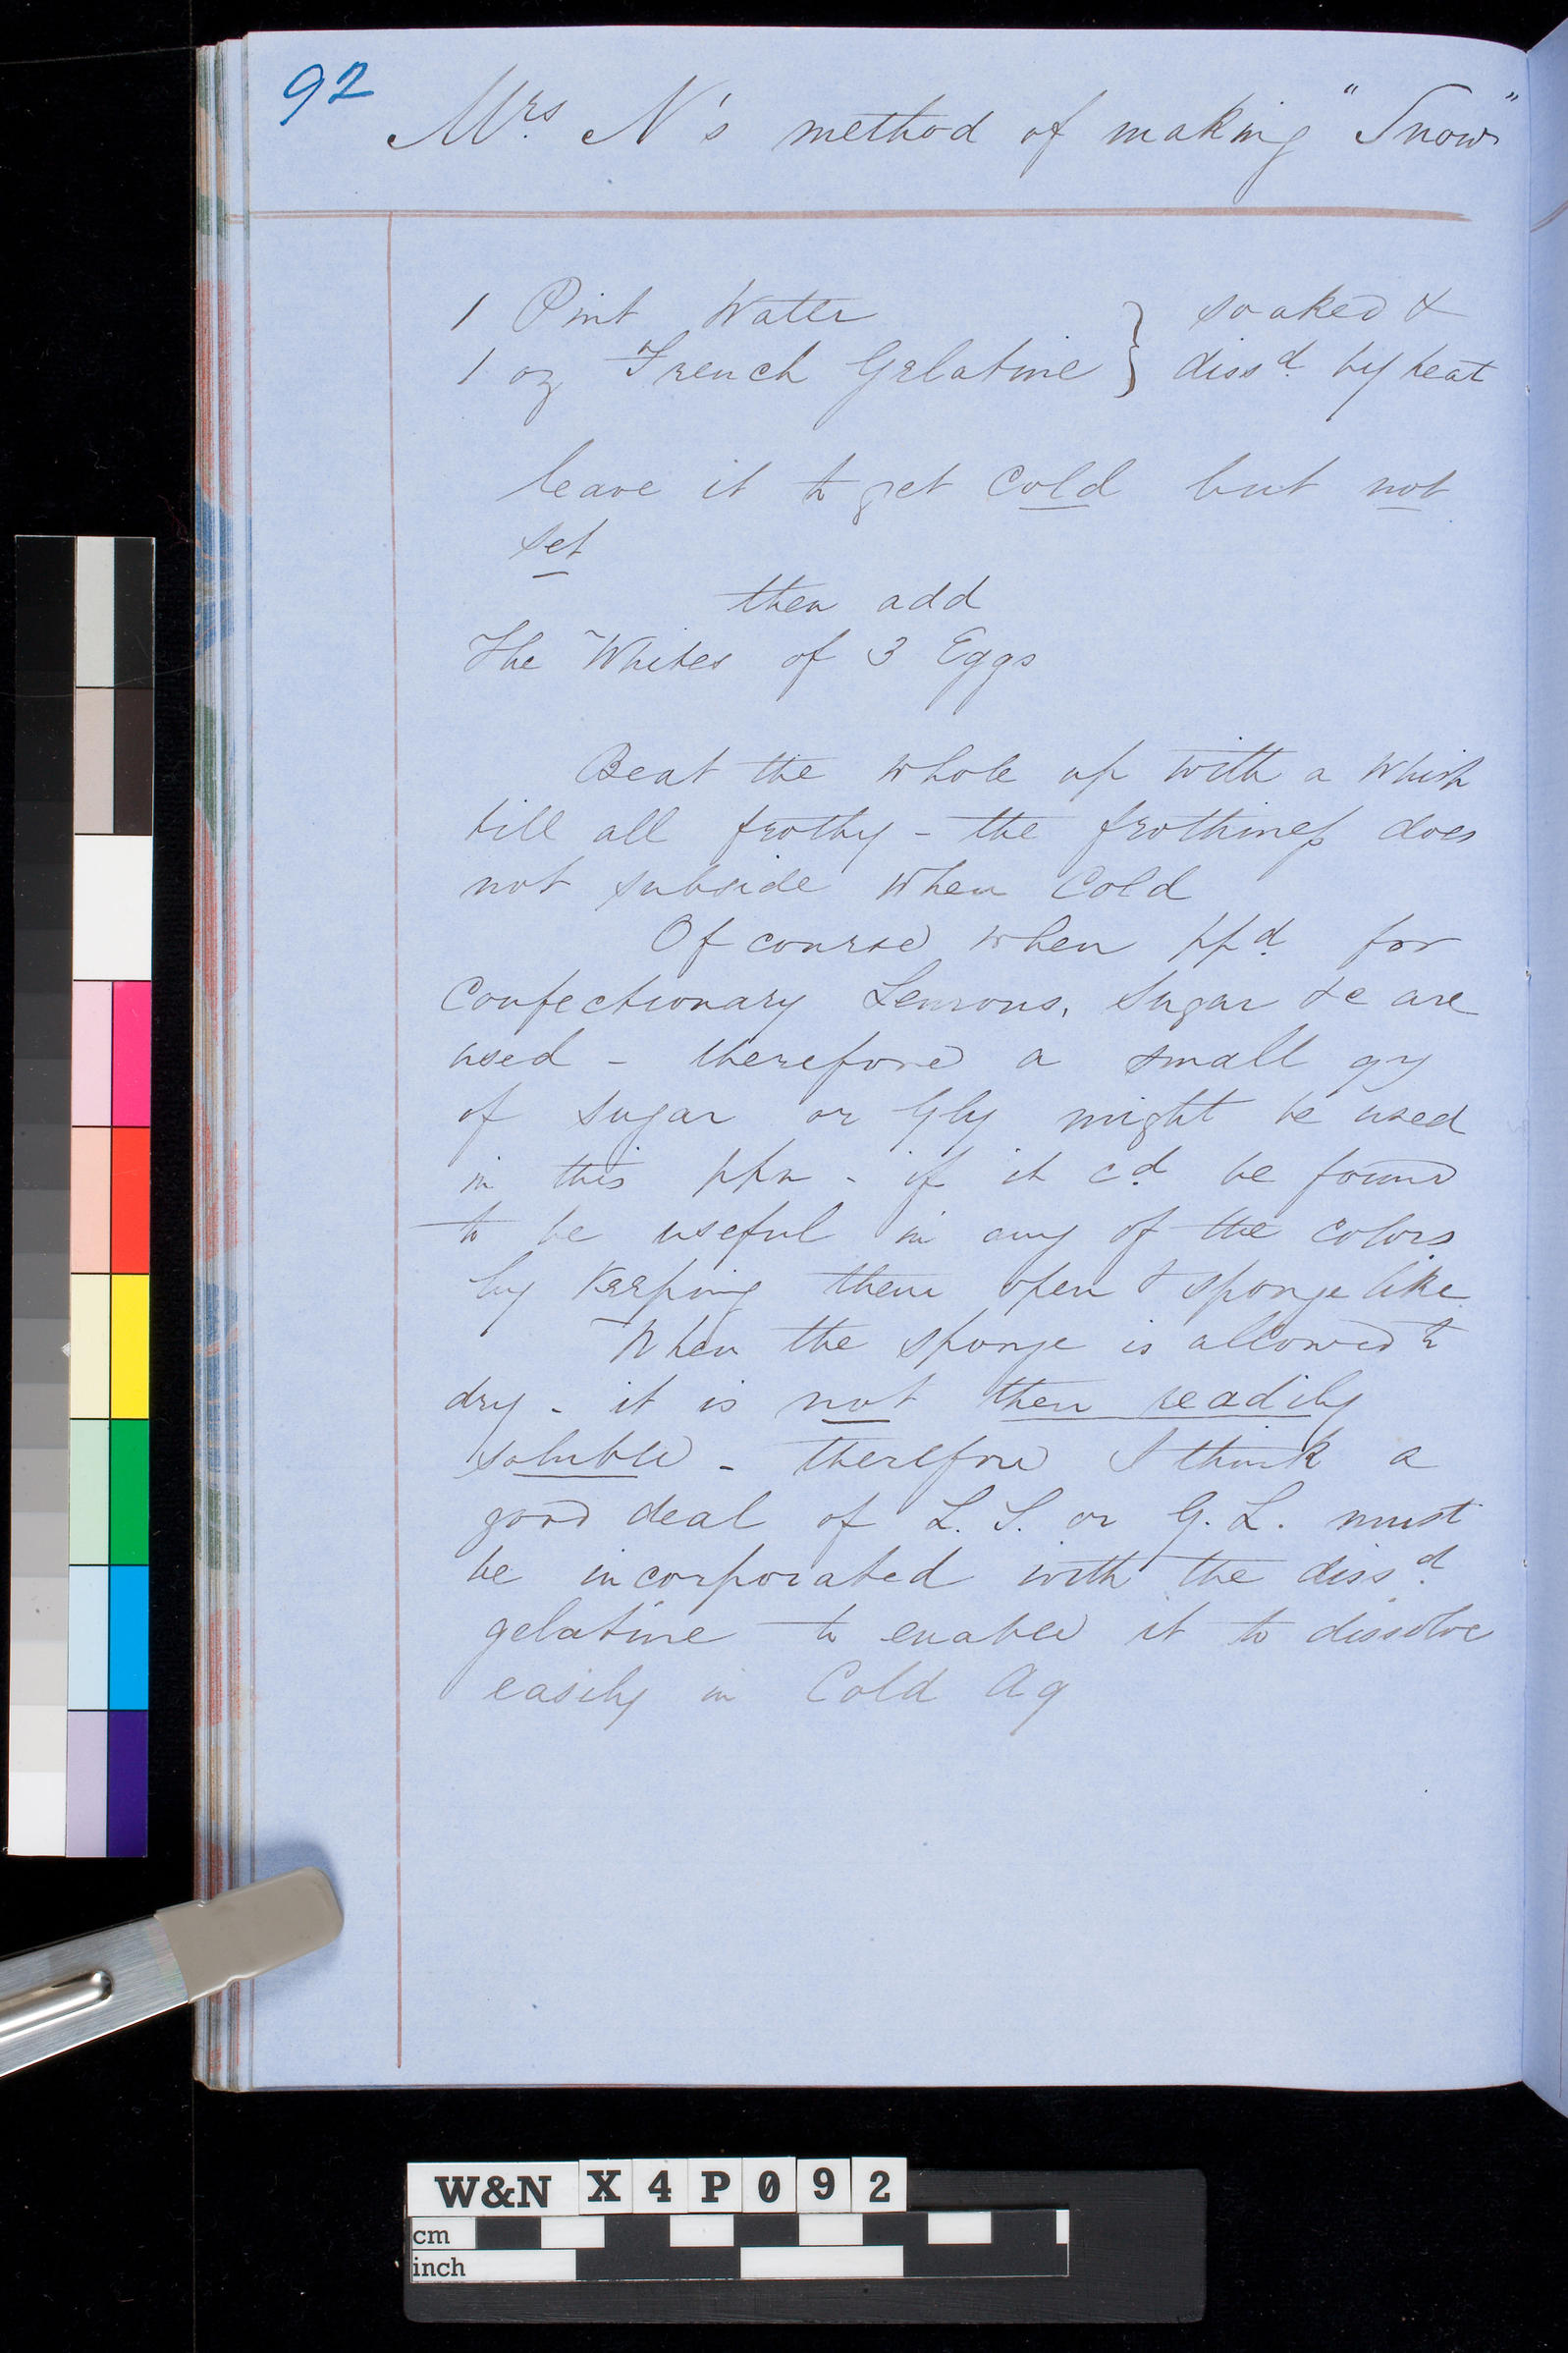 92
Mrs N's method of making "Snow"
1 Pint Water } soaked &
1 oz French Gelatine } dissd by heat
leave it to get cold but not
set
then add
The Whites of 3 Eggs
Beat the whole up with a Whisk
till all frothy - the frothiness does
not subside when Cold
Of course when ppd for
Confectionary Lemons, Sugar &c are
used - therefore a small qy
of sugar or Gly might be used
in this ppn - if it cd be found
to be useful in any of the colors
by keeping them open & sponge like
When the sponge is allowed to
dry - it is not then readily
soluble - therefore I think a
good deal of L. S. or G. L. must
be incorporated with the dissd
gelatine to enable it to dissolve
easily in Cold Aq
W&N X4P092
cm
inch